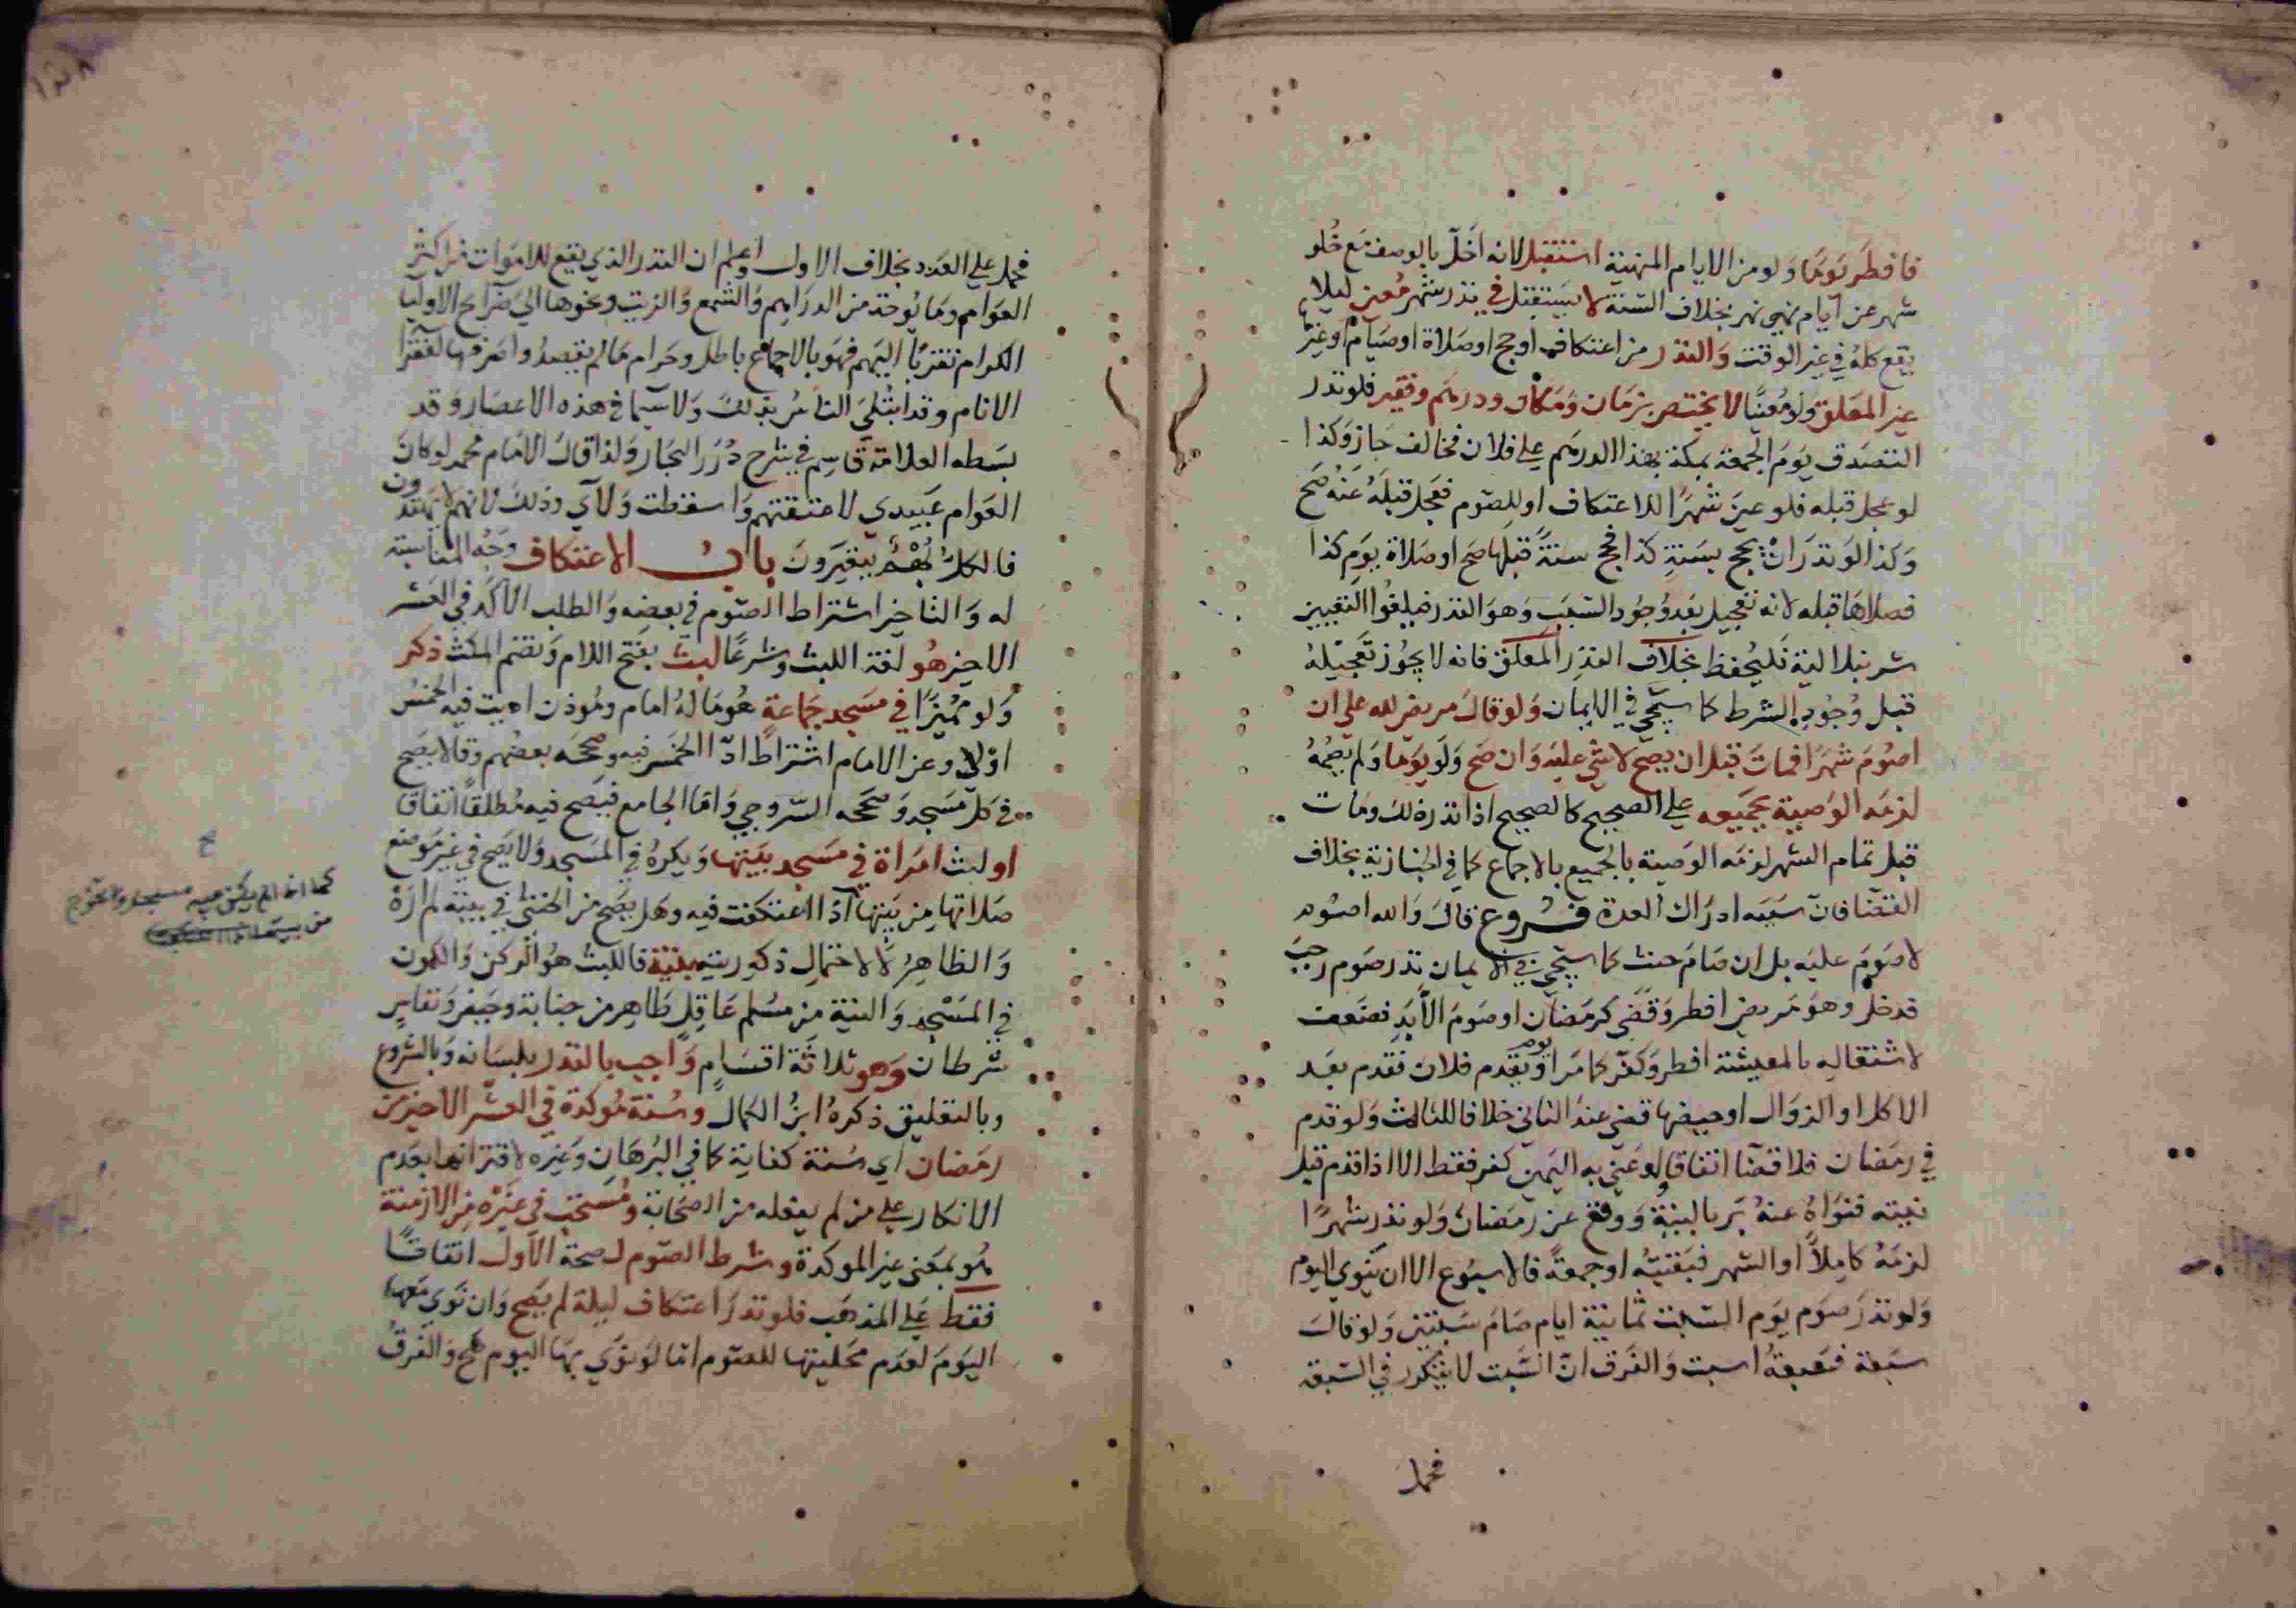 فافطر يوما ولو من الايام المنهية استقبل لانه اخل بالوصف مع خلو
شهر عن ايام نهي نهر بخلاف السنة لا يستقبل في نذر شهر معين ليلا
يقع كله في غير الوقت والنذر من اعتكاف او حج او صلاة او صيام او غيرها
غير المعلق ولو معينا لا يختص بزمان ومكان ودرهم وفقير فلو نذر
التصدق يوم الجمعة بمكة بهذا الدرهم على فلان فخالف جاز وكذا
لو عجل قبله فلو عين شهرا للاعتكاف او للصوم فعجل قبله عنه صح
وكذا لو نذر ان يحج بسنة كذا فحج سنة قبلها صح او صلاة يوم كذا
فصلاها قبله لانه تعجيل بعد وجود السبب وهو النذر فيلغوا التعيين
شرنبلالية فليحفظ بخلاف النذر المعلق فانه لا يجوز تعجيله
قبل وجود الشرط كما سيجي في الايمان ولو قال مريض لله علي ان
اصوم شهرا فمات قبل ان يصح لا شي عليه وان صح ولو يوما ولم يصمه
لزمه الوصية بجميعه على الصحيح كالصحيح اذا نذر ذلك ومات
قبل تمام الشهر لزمه الوصية بالجميع بالاجماع كما في الخبازية بخلاف
القضا فان سببه ادراك العدة فروع قال والله اصوم
لا صوم عليه بل ان صام حنث كما سيجي في الايمان نذر صوم رجب
فدخل وهو مريض افطر وقضى كرمضان او صوم الابد فضعف
لاشتغاله بالمعيشة افطر وكفر كما مر او يوم يقدم فلان فقدم بعد
الاكل او الزوال او حيضها قضى عند الثاني خلافا للثالث ولو قدم
في رمضان فلا قضا اتفاقا ولو عنى به اليمين كفر فقط الا اذا قدم قبل
نيته فنواه عنه بر بالنية ووقع عن رمضان ولو نذر شهرا
لزمه كاملا او الشهر فبقيته او جمعة فالاسبوع الا ان ينوي اليوم
ولو نذر صوم يوم السبت ثمانية ايام صام سبتين ولو قال
سبعة فسبعة اسبت والفرق ان السبت لا يتكرر في السبعة
فحمل
١٣٨
فحمل على العدد بخلاف الاول واعلم ان النذر الذي يقع للاموات من اكثر
العوام وما يوخذ من الدراهم والشمع والزيت ونحوها الى ضرايح الاوليا
الكرام تقربا اليهم فهو بالاجماع باطل وحرام ما لم يقصدوا صرفها لفقرا
الانام وقد ابتلي الناس بذلك ولا سيما في هذه الاعصار وقد
بسطه العلامة قاسم في شرح درر البحار ولذا قال الامام محمد لو كان
العوام عبيدي لاعتقتهم واسقطت ولآي وذلك لانهم لا يهتدون
فالكل بهم يتغيرون باب الاعتكاف وجه المناسبة
له والتاخير اشتراط الصوم في بعضه والطلب الآكد في العشر
الاخير هو لغة اللبث وشرعا لبث بفتح اللام وتضم المكث ذكر
ولو مميزا في مسجد جماعة هو ما له امام وموذن اديت فيه الخمس
اولا وعن الامام اشتراط ادا الخمس فيه وصححه بعضهم وقالا يصح
في كل مسجد وصححه السروجي واما الجامع فيصح فيه مطلقا اتفاقا
او لبث امراة في مسجد بيتها ويكره في المسجد ولا يصح في غير موضع
صلاتها من بيتها اذا اعتكفت فيه وهل يصح من الخنثى في بيته لم اره
والظاهر لا لاحتمال ذكوريته بنية فاللبث هو الركن والكون
في المسجد والنية من مسلم عاقل طاهر من جنابة وحيض ونفاس
شرطان وهو ثلاثة اقسام واجب بالنذر بلسانه وبالشروع
وبالتعليق ذكره ابن الكمال وسنة موكدة في العشر الاخير من
رمضان اي سنة كفاية كما في البرهان وغيره لاقترانها بعدم
الانكار على من لم يفعله من الصحابة ومستحب في غيره من الازمنة
هو بمعنى غير الموكدة وشرط الصوم لصحة الاول اتفاقا
فقط على المذهب فلو نذر اعتكاف ليلة لم يصح وان نوى معها
اليوم لعدم محليتها للصوم اما لو نوى بها اليوم صح والفرق
كما اذا لم يكن فيه مسجد ولا تخرج
من بيتها